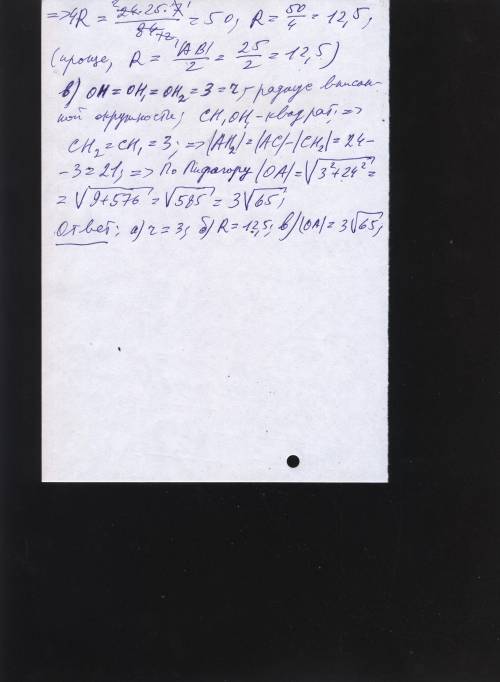 =>4R = 24·25·7/84 = 50, R = 50/4 = 12,5;
(проще, R = |AB|/2 = 25/2 = 12,5)
в) OH = OH₁ = OH₂ = 3 = r, – радиус вписан-
ной окружности; CH₁OH₂ – квадрат; =>
CH₂ = CH₁ = 3; => |AH₂| = |AC| – |CH₂| = 24 –
– 3 = 21; => По Пифагору |OA| = √3²+24² =
= √9+576 = √585 = 3√65;
Ответ: а) r = 3; б) R = 12,5; в) |OA| = 3√65;